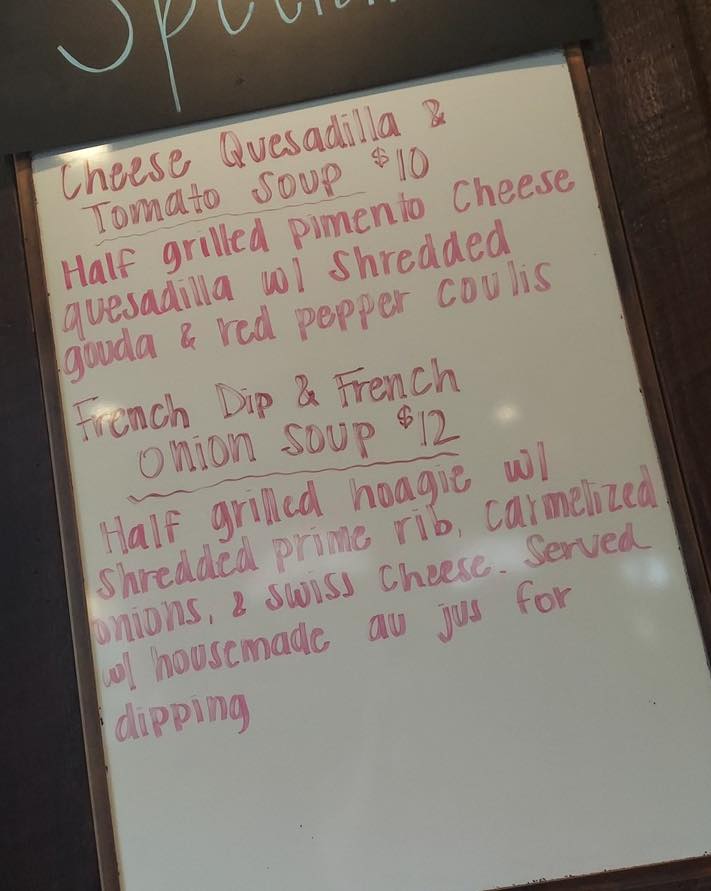 Cheese Quesadilla &
Tomato Soup $10
Half grilled pimento cheese
quesadilla w/ shredded
gouda & red pepper coulis
French Dip & French
Onion Soup $12
Half grilled hoagie w/
shredded prime rib, carmelized
onions, & swiss cheese. Served
w/ housemade au jus for
dipping